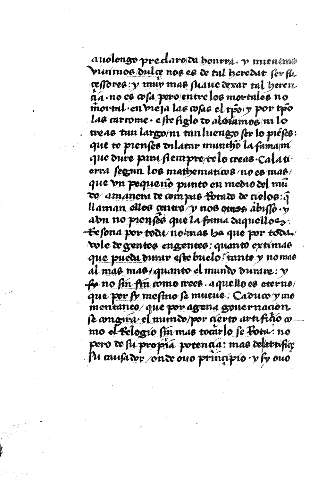 auolongo preclaro da honrra. y mientras
viuimos dulce nos es de tal heredat ser su
cessores: y muy mas suaue dexar tal heren
çia. no es cosa pero entre los mortales no
mortal. en vieja las cosas el tpõ. y por tpõ
las carcome. este siglo do abitamos ni lo
creas tan largo/ ni tan luengo ser lo pieses:
que te pienses dilatar muncho la fama/
que dure para siempre te lo creas. Ca la ti
erra segun los mathematicos no es mas/
que vn pequeño punto en medio del mũ
do amaneta de compas Rotado de cielos: q̃
llaman ellos centro. y nos otros abisso. y
avn no pienses que la fama daquellos
Resona por toda: no mas ha que por toda
vole de gentes engentes: quanto extimas
que pueda durar este buelo: tanto y no mas
al mas mas/ quanto el mundo durare: y
sy no sin fin como crees. aquello es eterno/
que por sy mesmo se mueue. Caduco y mo
mentaneo/ que por agena gouernacion
se congira. el mundo/ por cierto artifiçio co
mo el Relogio sin mas tocarlo se Rota: no
pero de su propria potençia: mas del artifiçe
su causador/ onde ouo prinçipio. y sy ouo